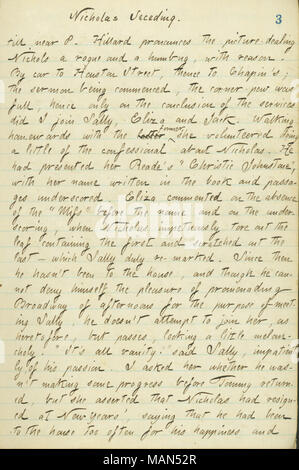 Nicholas Seceding.
3
till near 8. Hillard pronounces the picture-dealing
Nichols a rogue and a humbug, with reason.
By car to Houston Street, thence to Chapin's;
the sermon being commenced, the corner pew was
full, hence only on the conclusion of the services
did I join Sally, Eliza and Jack. Walking
homewards with the former she volunteered doing
a little of the confessional about Nicholas. He
had presented her Reade's "Christie Johnstone,"
with her name written in the book and passa-
ges underscored. Eliza commented on the absence
of the "Miss" before the name and on the under-
scoring, when Nicholas ingenuously tore out the
leaf containing the first and scratched out the
last - which Sally duly re-marked. Since then
he hasn't been to the house, and though he can-
not deny himself the pleasure of promenading
Broadway of afternoons for the purpose of meet-
ing Sally, he doesn't attempt to join her, as
heretofore, but passes, looking a little melan-
choly. "It's all vanity!" said Sally, impatient-
ly of his passion. I asked her whether he was-
n't making some progress before Tommy return-
ed, but she asserted that Nicholas had resign-
ed at New Years', saying that he had been
to the house too often for his happiness, and
alamy
Image ID: MAN52R
www.alamy.com